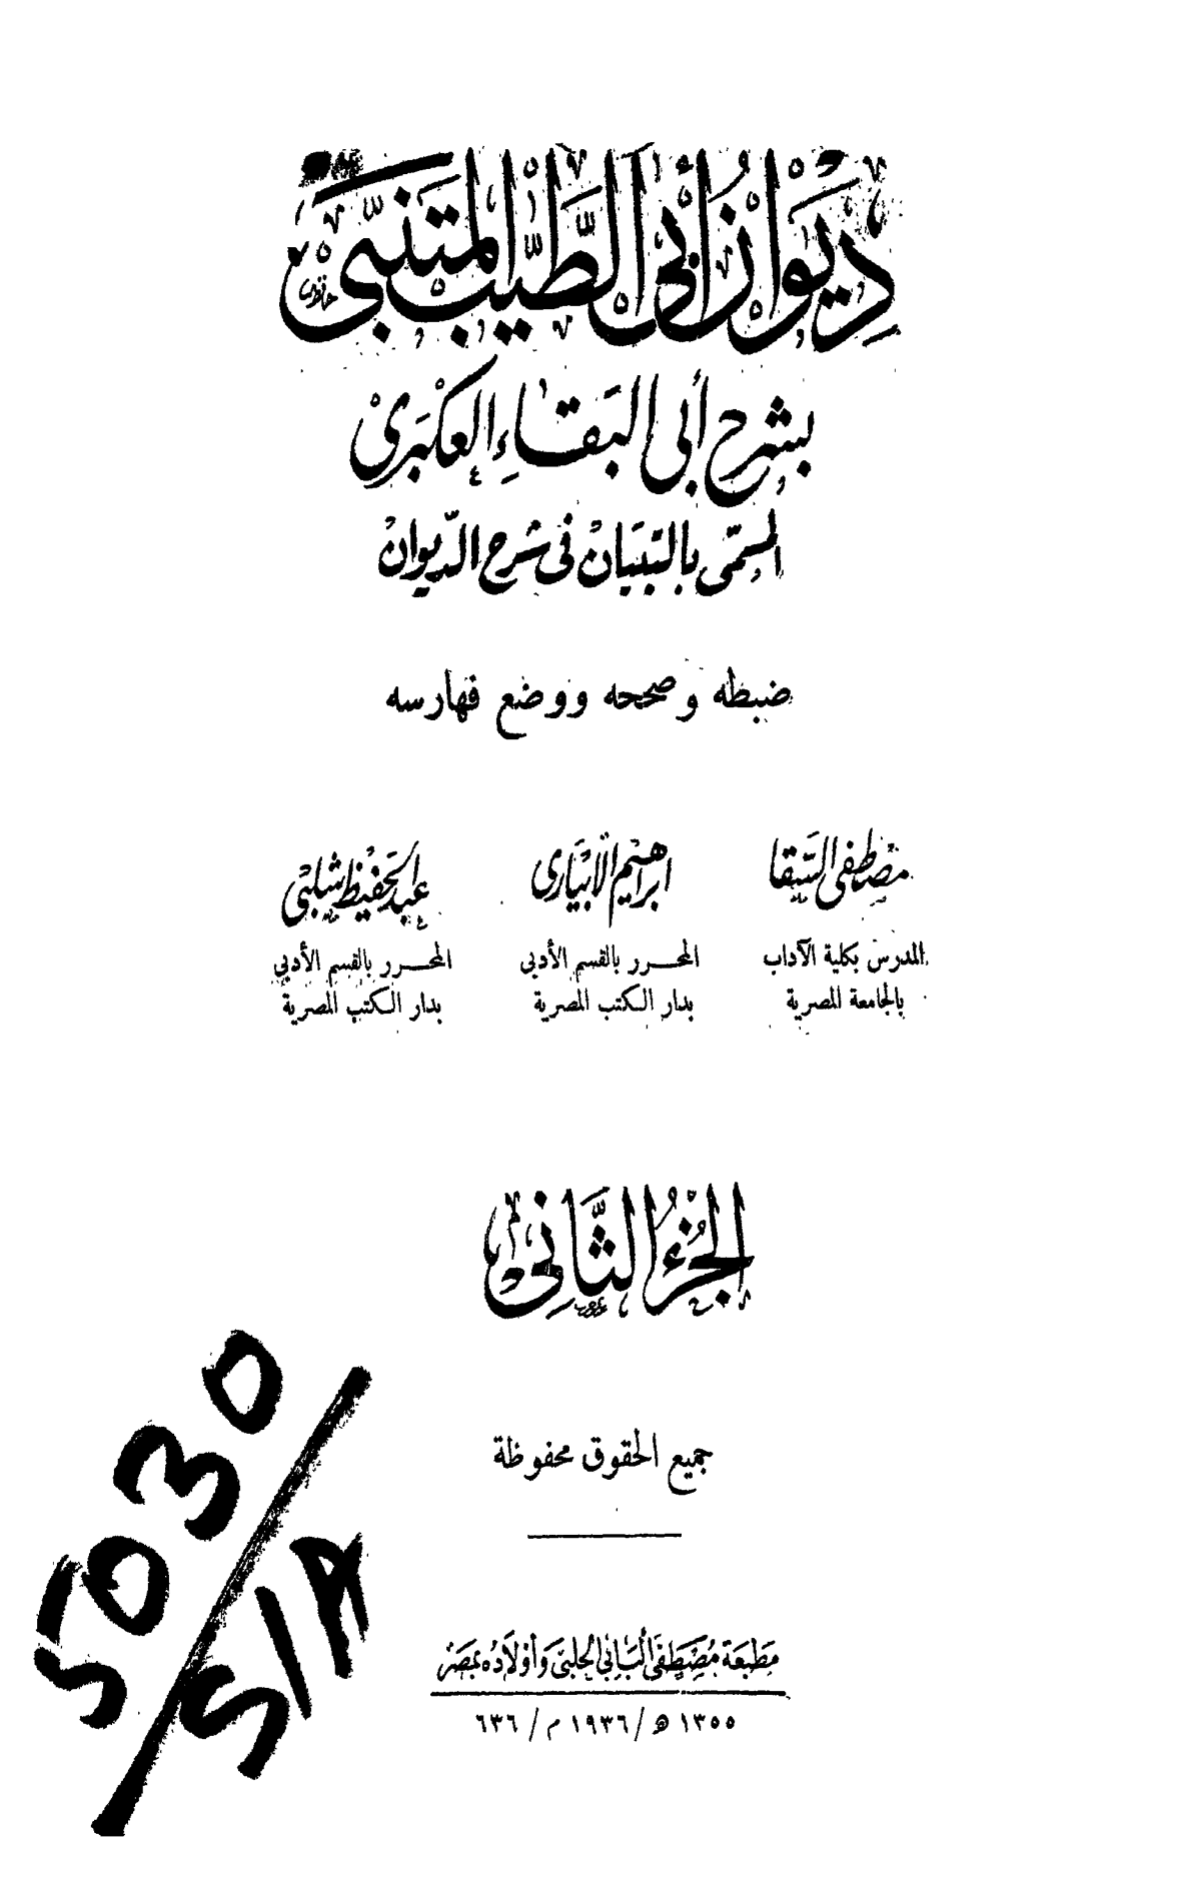 ديوان أبي الطيب المتنبي
بشرح أبي البقاء العكبري
المسمى بالتبيان في شرح الديوان
ضبطه وصححه ووضع فهارسه
مصطفى السقا
ابراهيم الأبياري
عبد الحفيظ شلبي
المدرس بكلية الآداب
بالجامعة المصرية
المحرر بالقسم الأدبي
بدار الكتب المصرية
المحرر بالقسم الأدبي
بدار الكتب المصرية
الجزء الثاني
جميع الحقوق محفوظة
مطبعة مصطفى البابي الحلبي وأولاده بمصر
١٣٥٥ ه / ١٩٣٦ م / ٦٣٦
5030